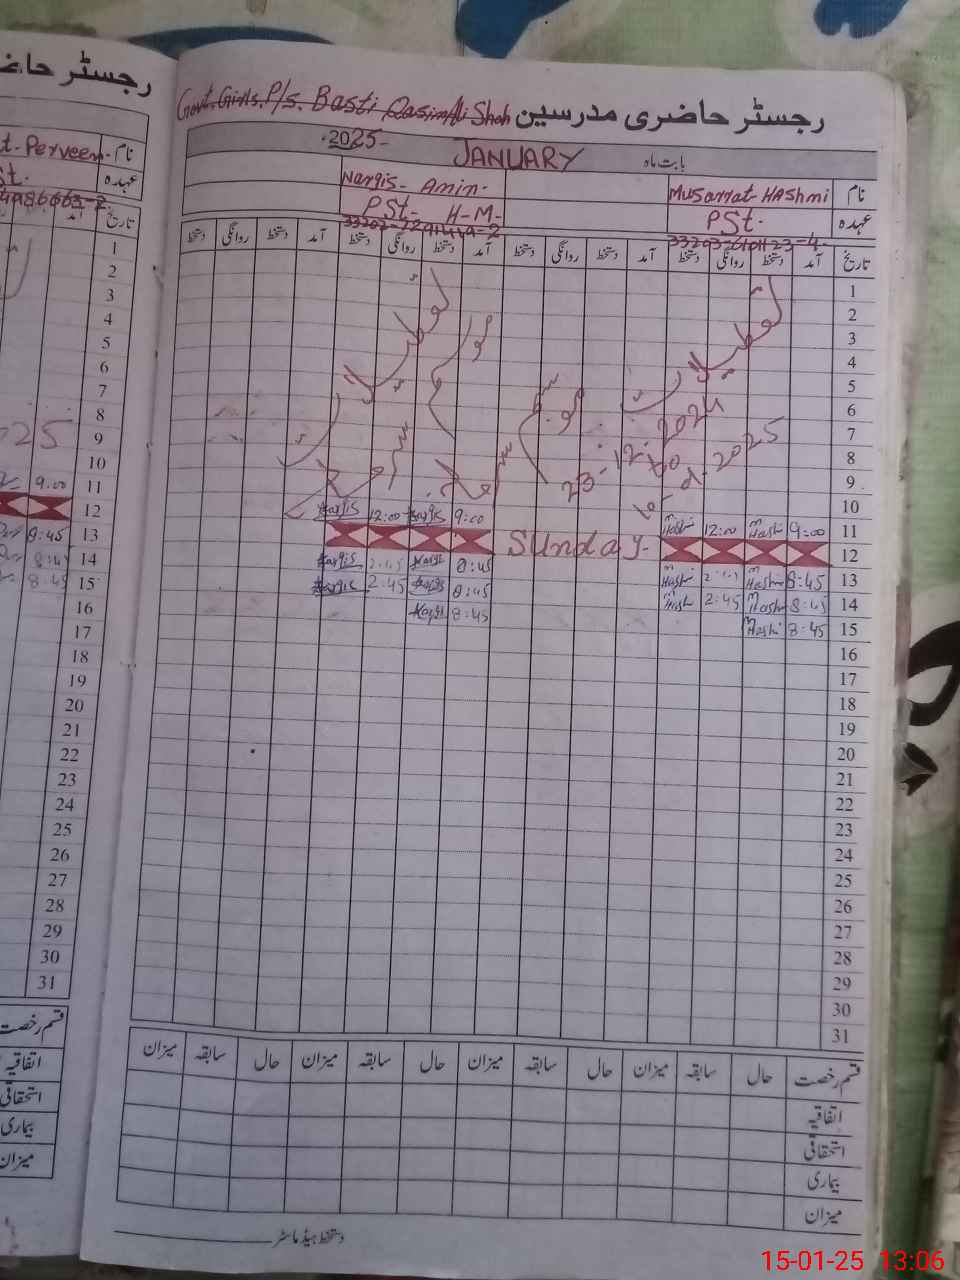 رجسٹر حاضری مدرسین Govt. Girls. P/s. Basti Qasim Ali Shah
بابت ماہ JANUARY 2025
نام Musarrat Hashmi Nargis Amin
عہدہ PSt. PSt H-M-
تاریخ آمد دستخط روانگی دستخط آمد دستخط روانگی دستخط آمد دستخط روانگی دستخط آمد دستخط روانگی دستخط
1
2
3
4
5
6
7
8
9
10
موسم سرما تعطیلات
موسم سرما تعطیلات
23-12-2024
to
10-1-2025
11 9:00 Hashmi 12:00 Hashmi 9:00 Nargis 12:00 Nargis
12 Sunday
13 8:45 Hashmi Hashmi 8:45 Nargis 2:45 Nargis
14 8:45 Hashmi 2:45 Hashmi 8:45 Nargis 2:45 Nargis
15 8:45 Hashmi 8:45 Nargis
16
17
18
19
20
21
22
23
24
25
26
27
28
29
30
31
قسم رخصت حال سابقہ میزان حال سابقہ میزان حال سابقہ میزان حال سابقہ میزان
اتفاقیہ
استحقاقی
بیماری
میزان
دستخط ہیڈ ماسٹر
رجسٹر
نام t. Perveen
عہدہ St.
تاریخ آمد
1
2
3
4
5
6
7
8
9
10
11 9:00
12
13 8:45
14 8:45
15 8:45
16
17
18
19
20
21
22
23
24
25
26
27
28
29
30
31
قسم رخصت
اتفاقیہ
استحقاقی
بیماری
میزان
15-01-25 13:06